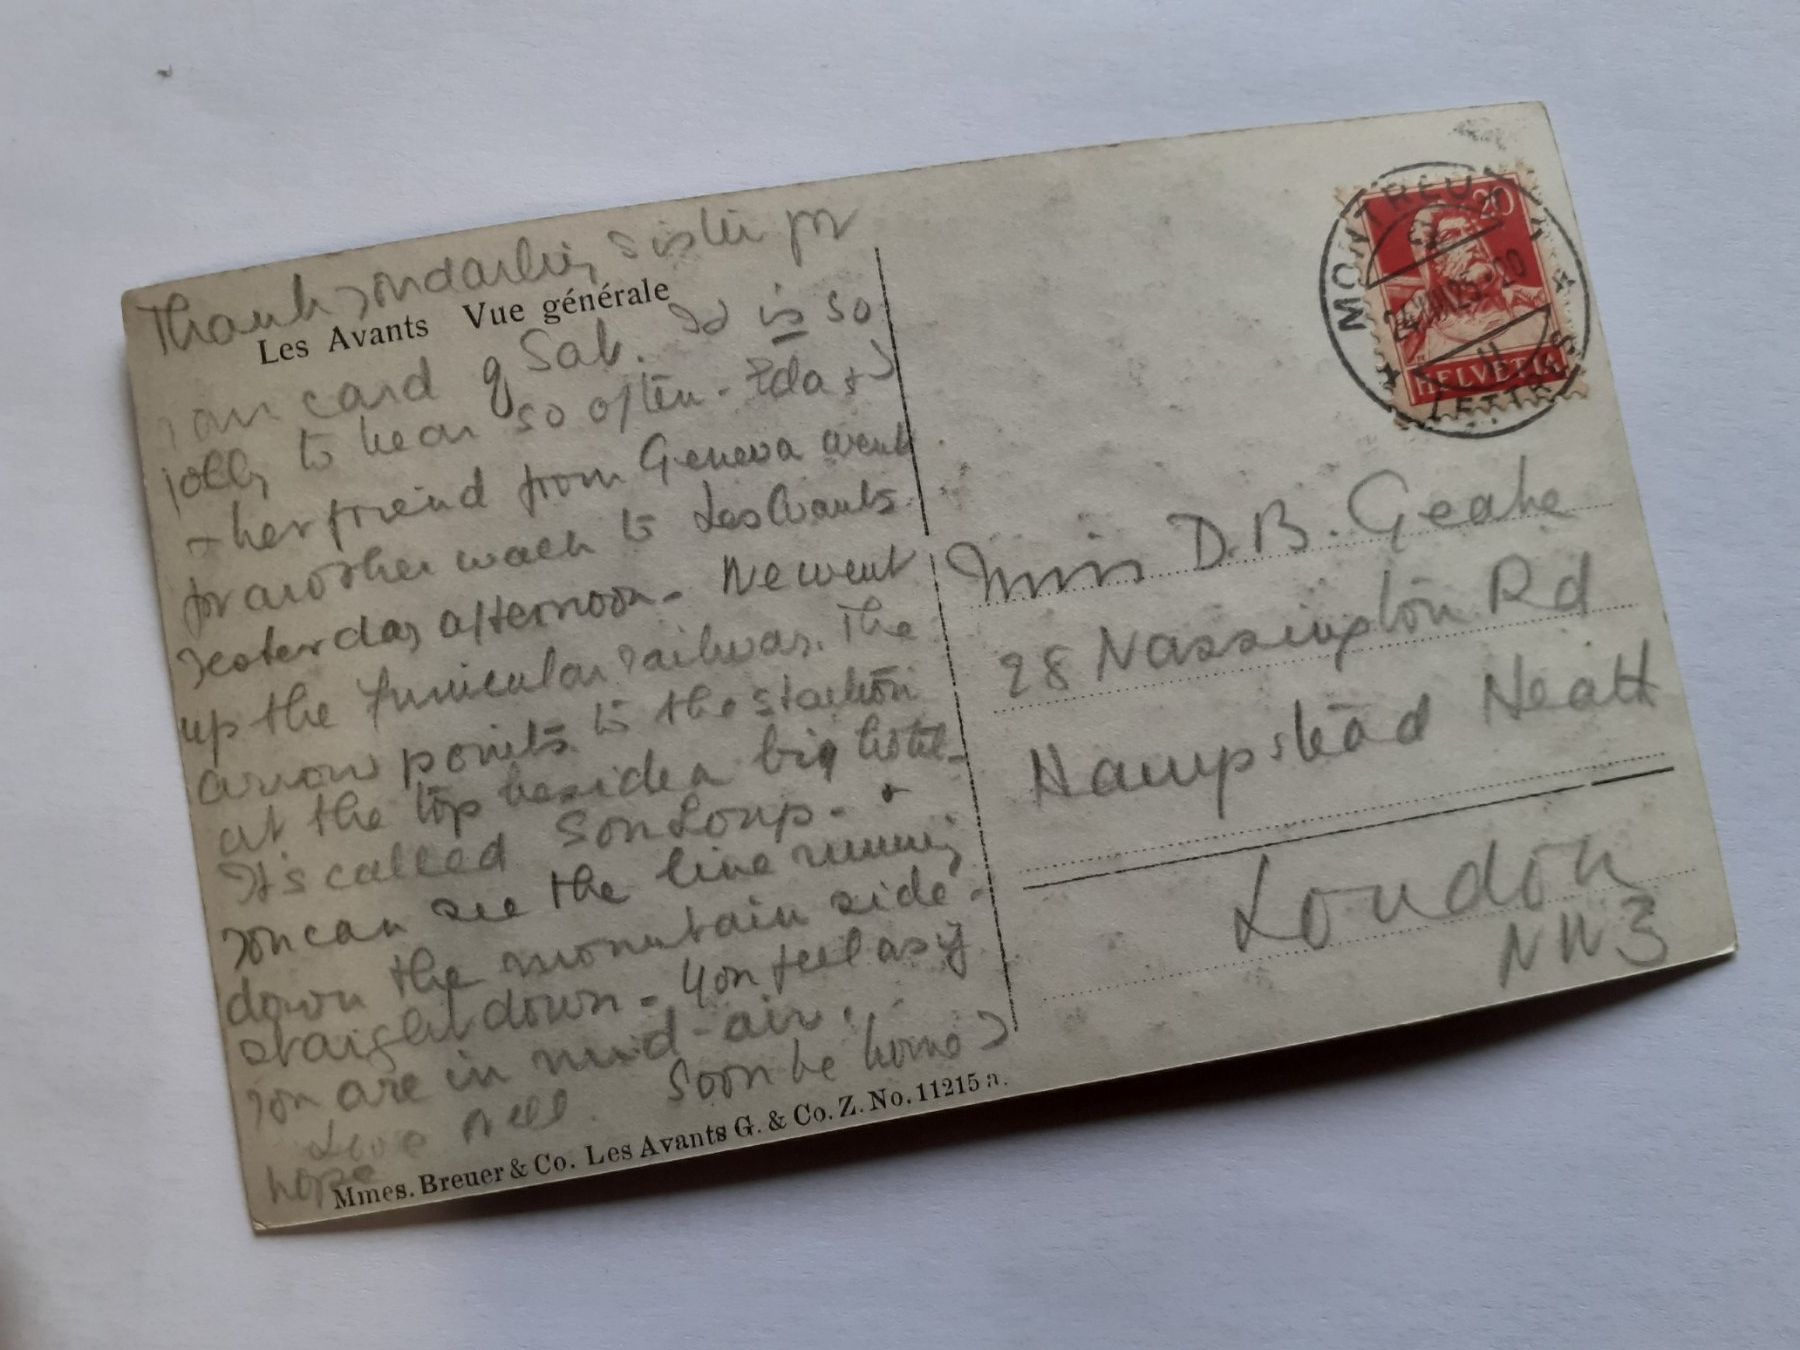 Thank you darling sister for
Les Avants Vue générale
your card of Sat. It is so
jolly to hear so often. Ida & I
& her friend from Geneva went
for another walk to Les Avants
yesterday afternoon. We went
up the funicular railway. The
arrow points to the station
at the top beside a big hotel.
It's called Son Loup. &
you can see the line running
down the mountain side -
straight down. You feel as if
you are in mid-air.
Love Nell. Soon be home I
hope
Mmes. Breuer & Co. Les Avants G. & Co. Z. No. 11215 a.
MONTREUX
LETTRES
20
HELVETIA
Miss D. B. Geake
28 Nassington Rd
Hampstead Heath
London
NW3